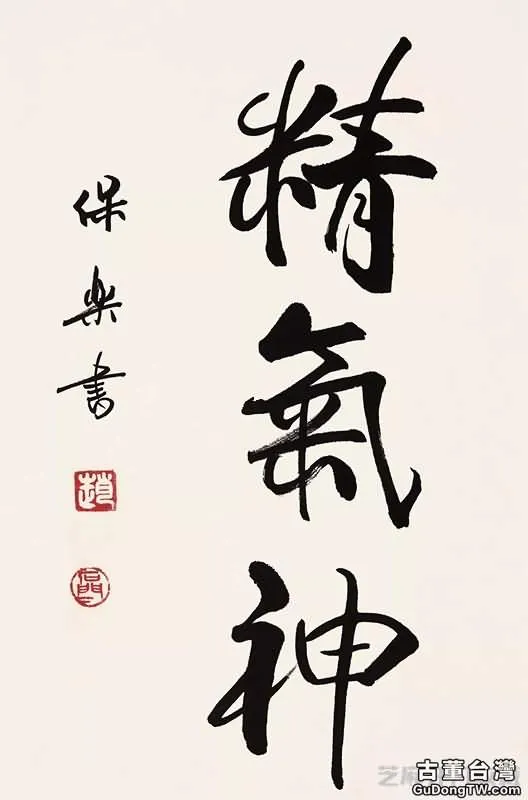 精氣神
保樂書
趙
古董台灣
GuDongTW.com